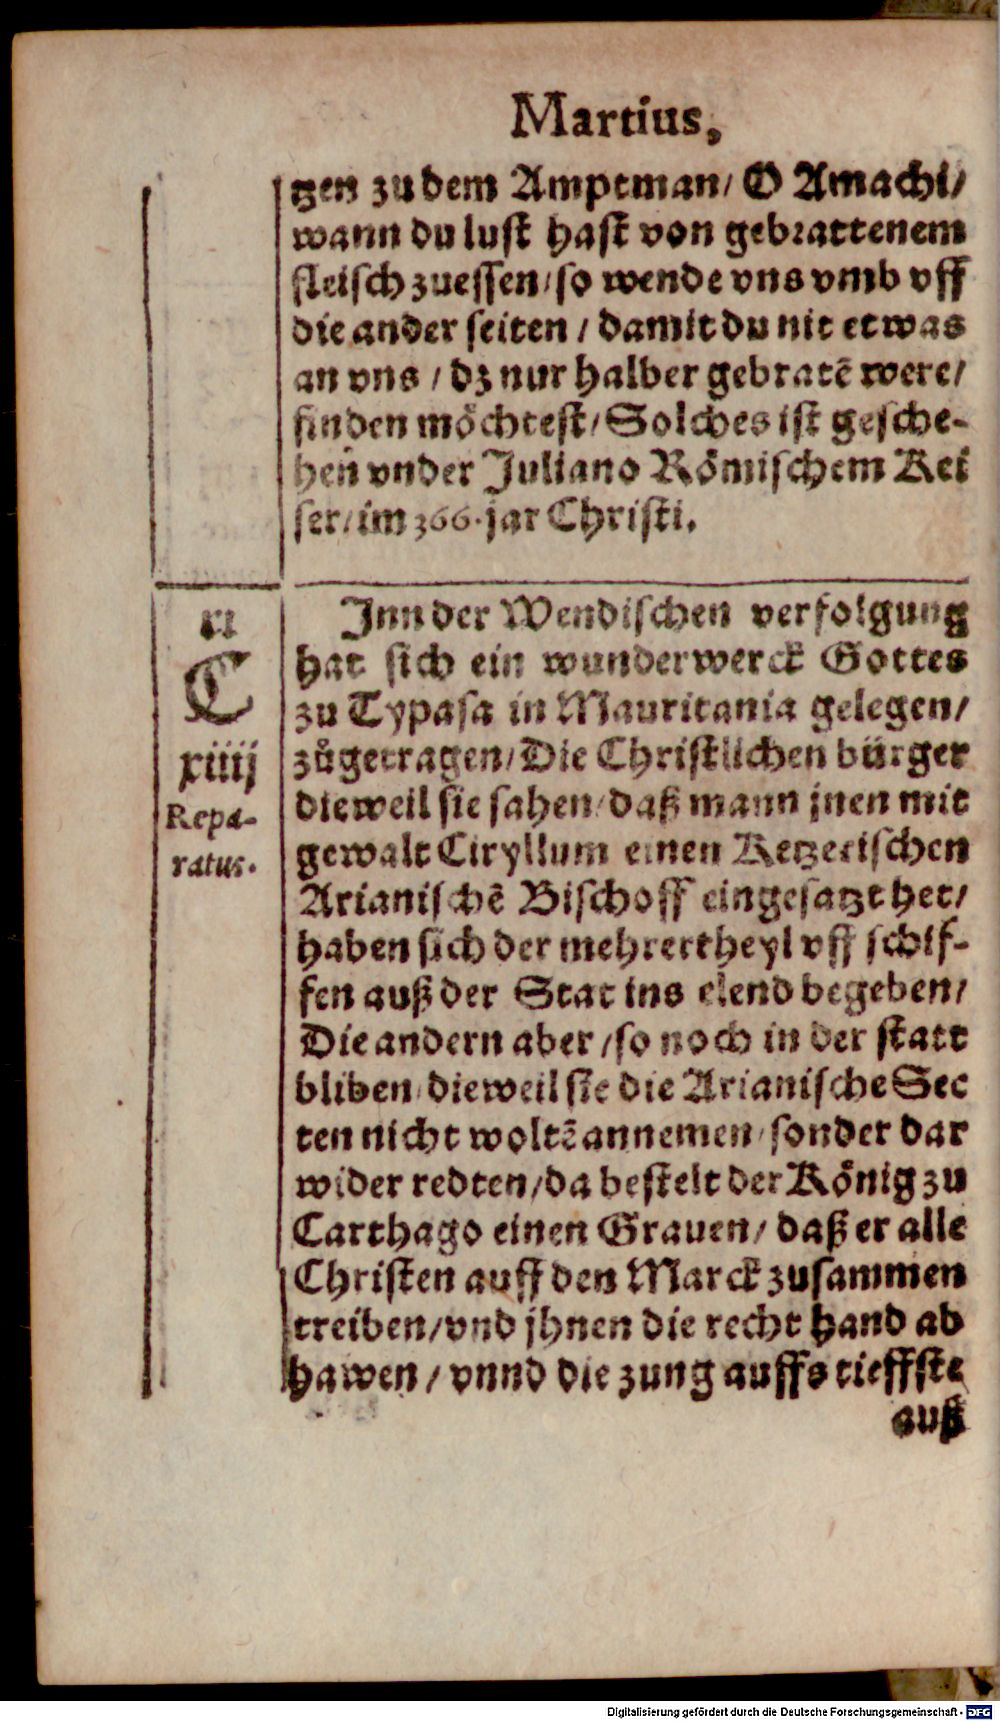 Martius,
tzen zu dem Amptman/ O Amachi/
wann du lust hast von gebrattenem
fleisch zuessen/ so wende vns vmb vff
die ander seiten / damit du nit etwas
an vns / dz nur halber gebratē were/
finden möchtest/ Solches ist gesche-
hen vnder Juliano Römischem Kei
ser/ im 366. jar Christi.
vi
C
xiiij
Repa-
ratus.
Jnn der Wendischen verfolgung
hat sich ein wunderwerck Gottes
zu Typasa in Mauritania gelegen/
zůgetragen/ Die Christlichen bürger
dieweil sie sahen/ daß mann jnen mit
gewalt Ciryllum einen Ketzerischen
Arianischē Bischoff eingesatzt het/
haben sich der mehrertheyl vff schif-
fen auß der Stat ins elend begeben/
Die andern aber / so noch in der statt
bliben/ dieweil sie die Arianische Sec
ten nicht woltē annemen/ sonder dar
wider redten/ da bestelt der König zu
Carthago einen Grauen/ daß er alle
Christen auff den Marck zusammen
treiben/ vnd jhnen die recht hand ab
hawen / vnnd die zung auffs tieffste
auß
Digitalisierung gefördert durch die Deutsche Forschungsgemeinschaft - DFG